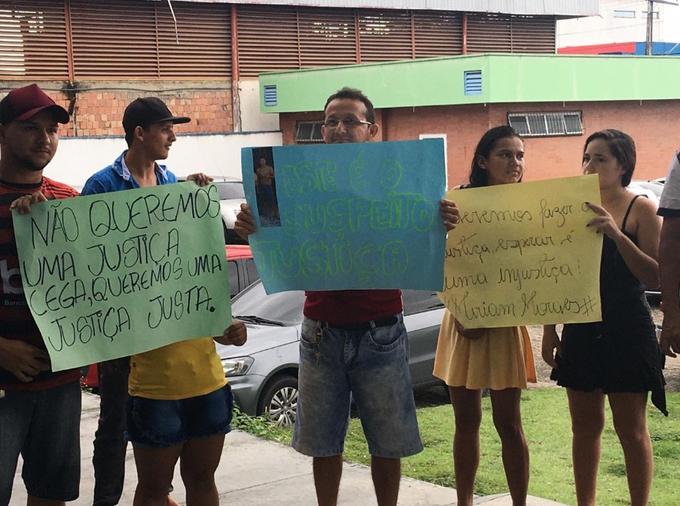 NÃO QUEREMOS
UMA JUSTIÇA
CEGA, QUEREMOS UMA
JUSTIÇA JUSTA.
ESTE É O
SUSPEITO
JUSTIÇA
Queremos fazer a
justiça, esperar é
uma injustiça!
#Miriam Moraes#